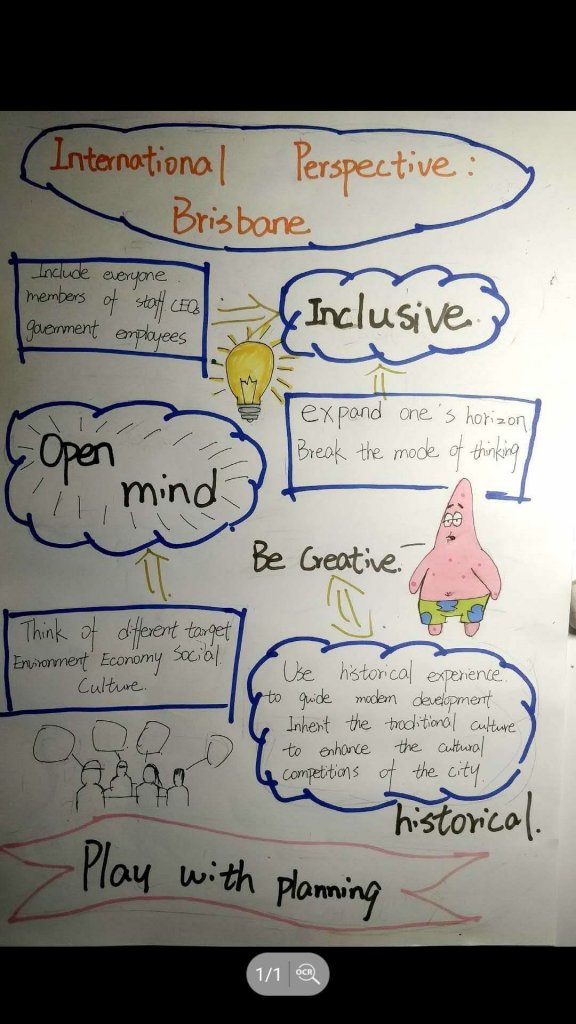 International Perspective:
Brisbane
Include everyone
members of staff CEOs
government employees
Inclusive.
expand one's horizon
Break the mode of thinking
Open
mind
Be Creative.
Think of different target
Environment Economy Social.
Culture.
Use historical experience.
to guide modern development
Inherit the traditional culture
to enhance the cultural
competitions of the city.
historical.
Play with planning
1/1 OCR